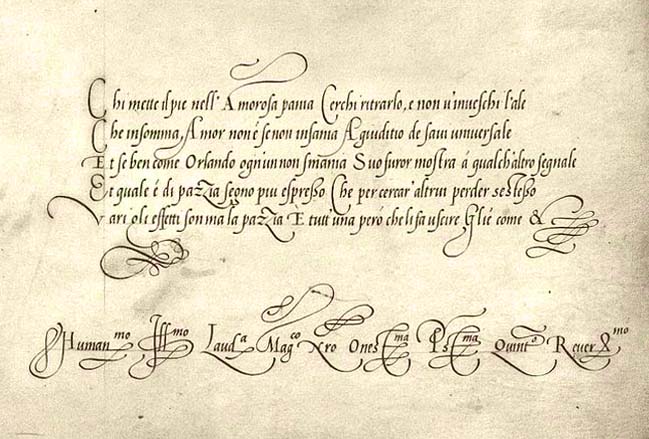 Chi mette il pie nell' Amorosa pania Cerchi ritrarlo, e non v'inveschi l'ale
Che in somma Amor non é se non insania A giuditio de savi universale
E se ben come Orlando ogniun non smania Suo furor mostra á qualch'altro segnale
Et quale é di pazzia segno piu espresso Che per cercar' altrui perder se stesso
Vari oli effetti son ma la pazzia E tutt'una peró che li fa uscire Gli é come &
Human.mo Ill.mo Laud.a Mag.co Nro Ones.ma Ps.ma Quint.o Rever.mo